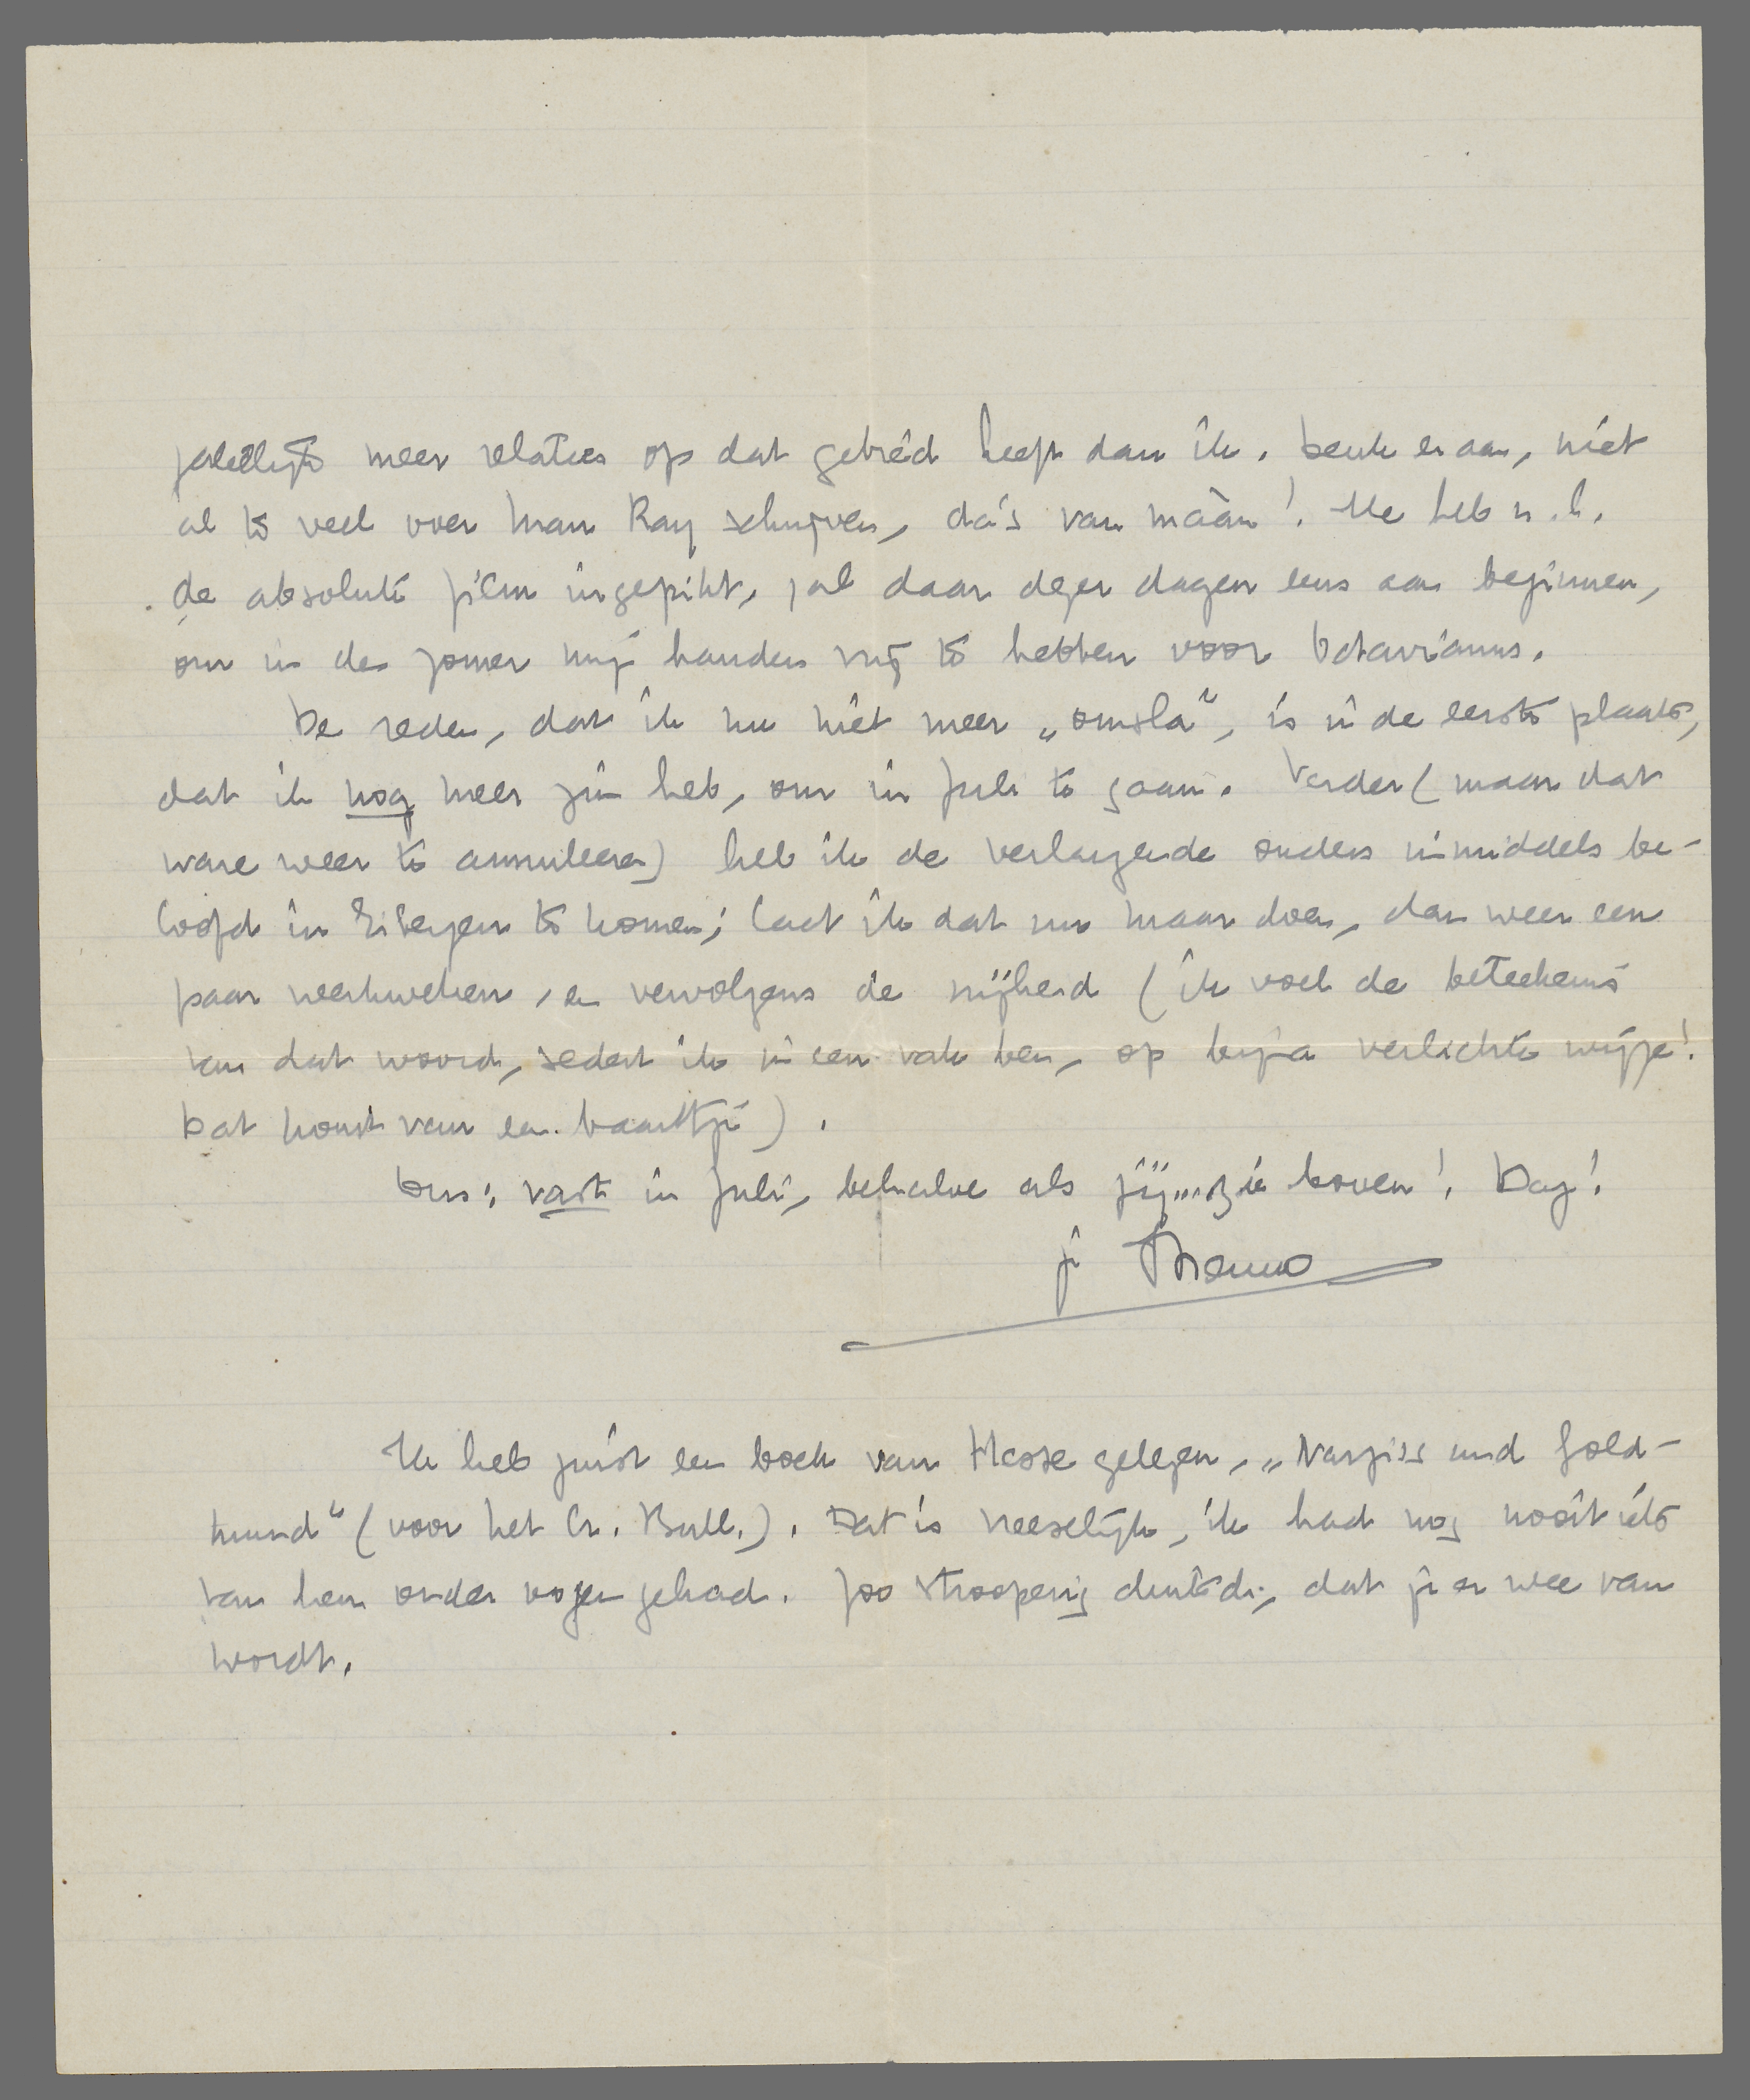 meer relaties op dat gebied heeft dan ik. Denk er aan, niet
al te veel over Man Ray schrijven, da's van mààn! Ik heb n.l.
de absolute film ingepikt, zal daar dezer dagen eens aan beginnen,
om in den zomer mijn handen vrij te hebben voor Batavianus.
De reden, dat ik nu niet meer „omsla”, is in de eerste plaats,
dat ik nog meer zin heb, om in Juli te gaan. Verder (maar dat
ware weer te annuleeren) heb ik de verlangende ouders inmiddels be-
loofd in Eibergen te komen; laat ik dat nu maar doen, dan weer een
paar werkweken, en vervolgens de vrijheid (ik voel de beteekenis
van dat woord, sedert ik in een vak ben, op bijna verlichte wijze!
Dat komt van een baantje).
Dus: vast in Juli, behalve als jij... zie boven! Dag!
je Menno
Ik heb juist een boek van Hesse gelezen, „Narziss und Gold-
mund” (voor het Cr. Bull.). Dat is vreeselijk, ik had nog nooit iets
van hem onder oogen gehad. Zoo stroperig duitsch, dat je er wee van
wordt.